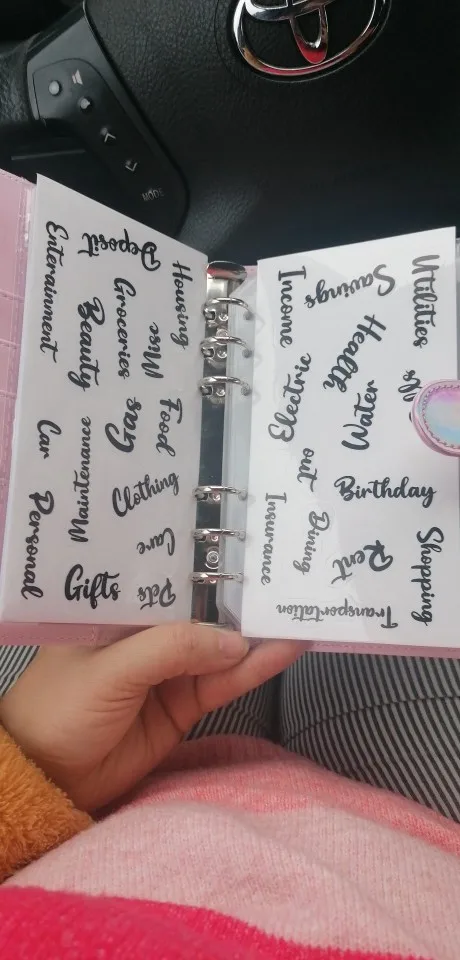 MODE
Deposit
Housing
Entertainment
Groceries
Misc
Beauty
Food
Gas
Car
Maintenance
Clothing
Care
Personal
Gifts
Pets
Utilities
Savings
Income
Health
Electric
Water
out
Birthday
Dining
Insurance
Shopping
Rent
Transportation